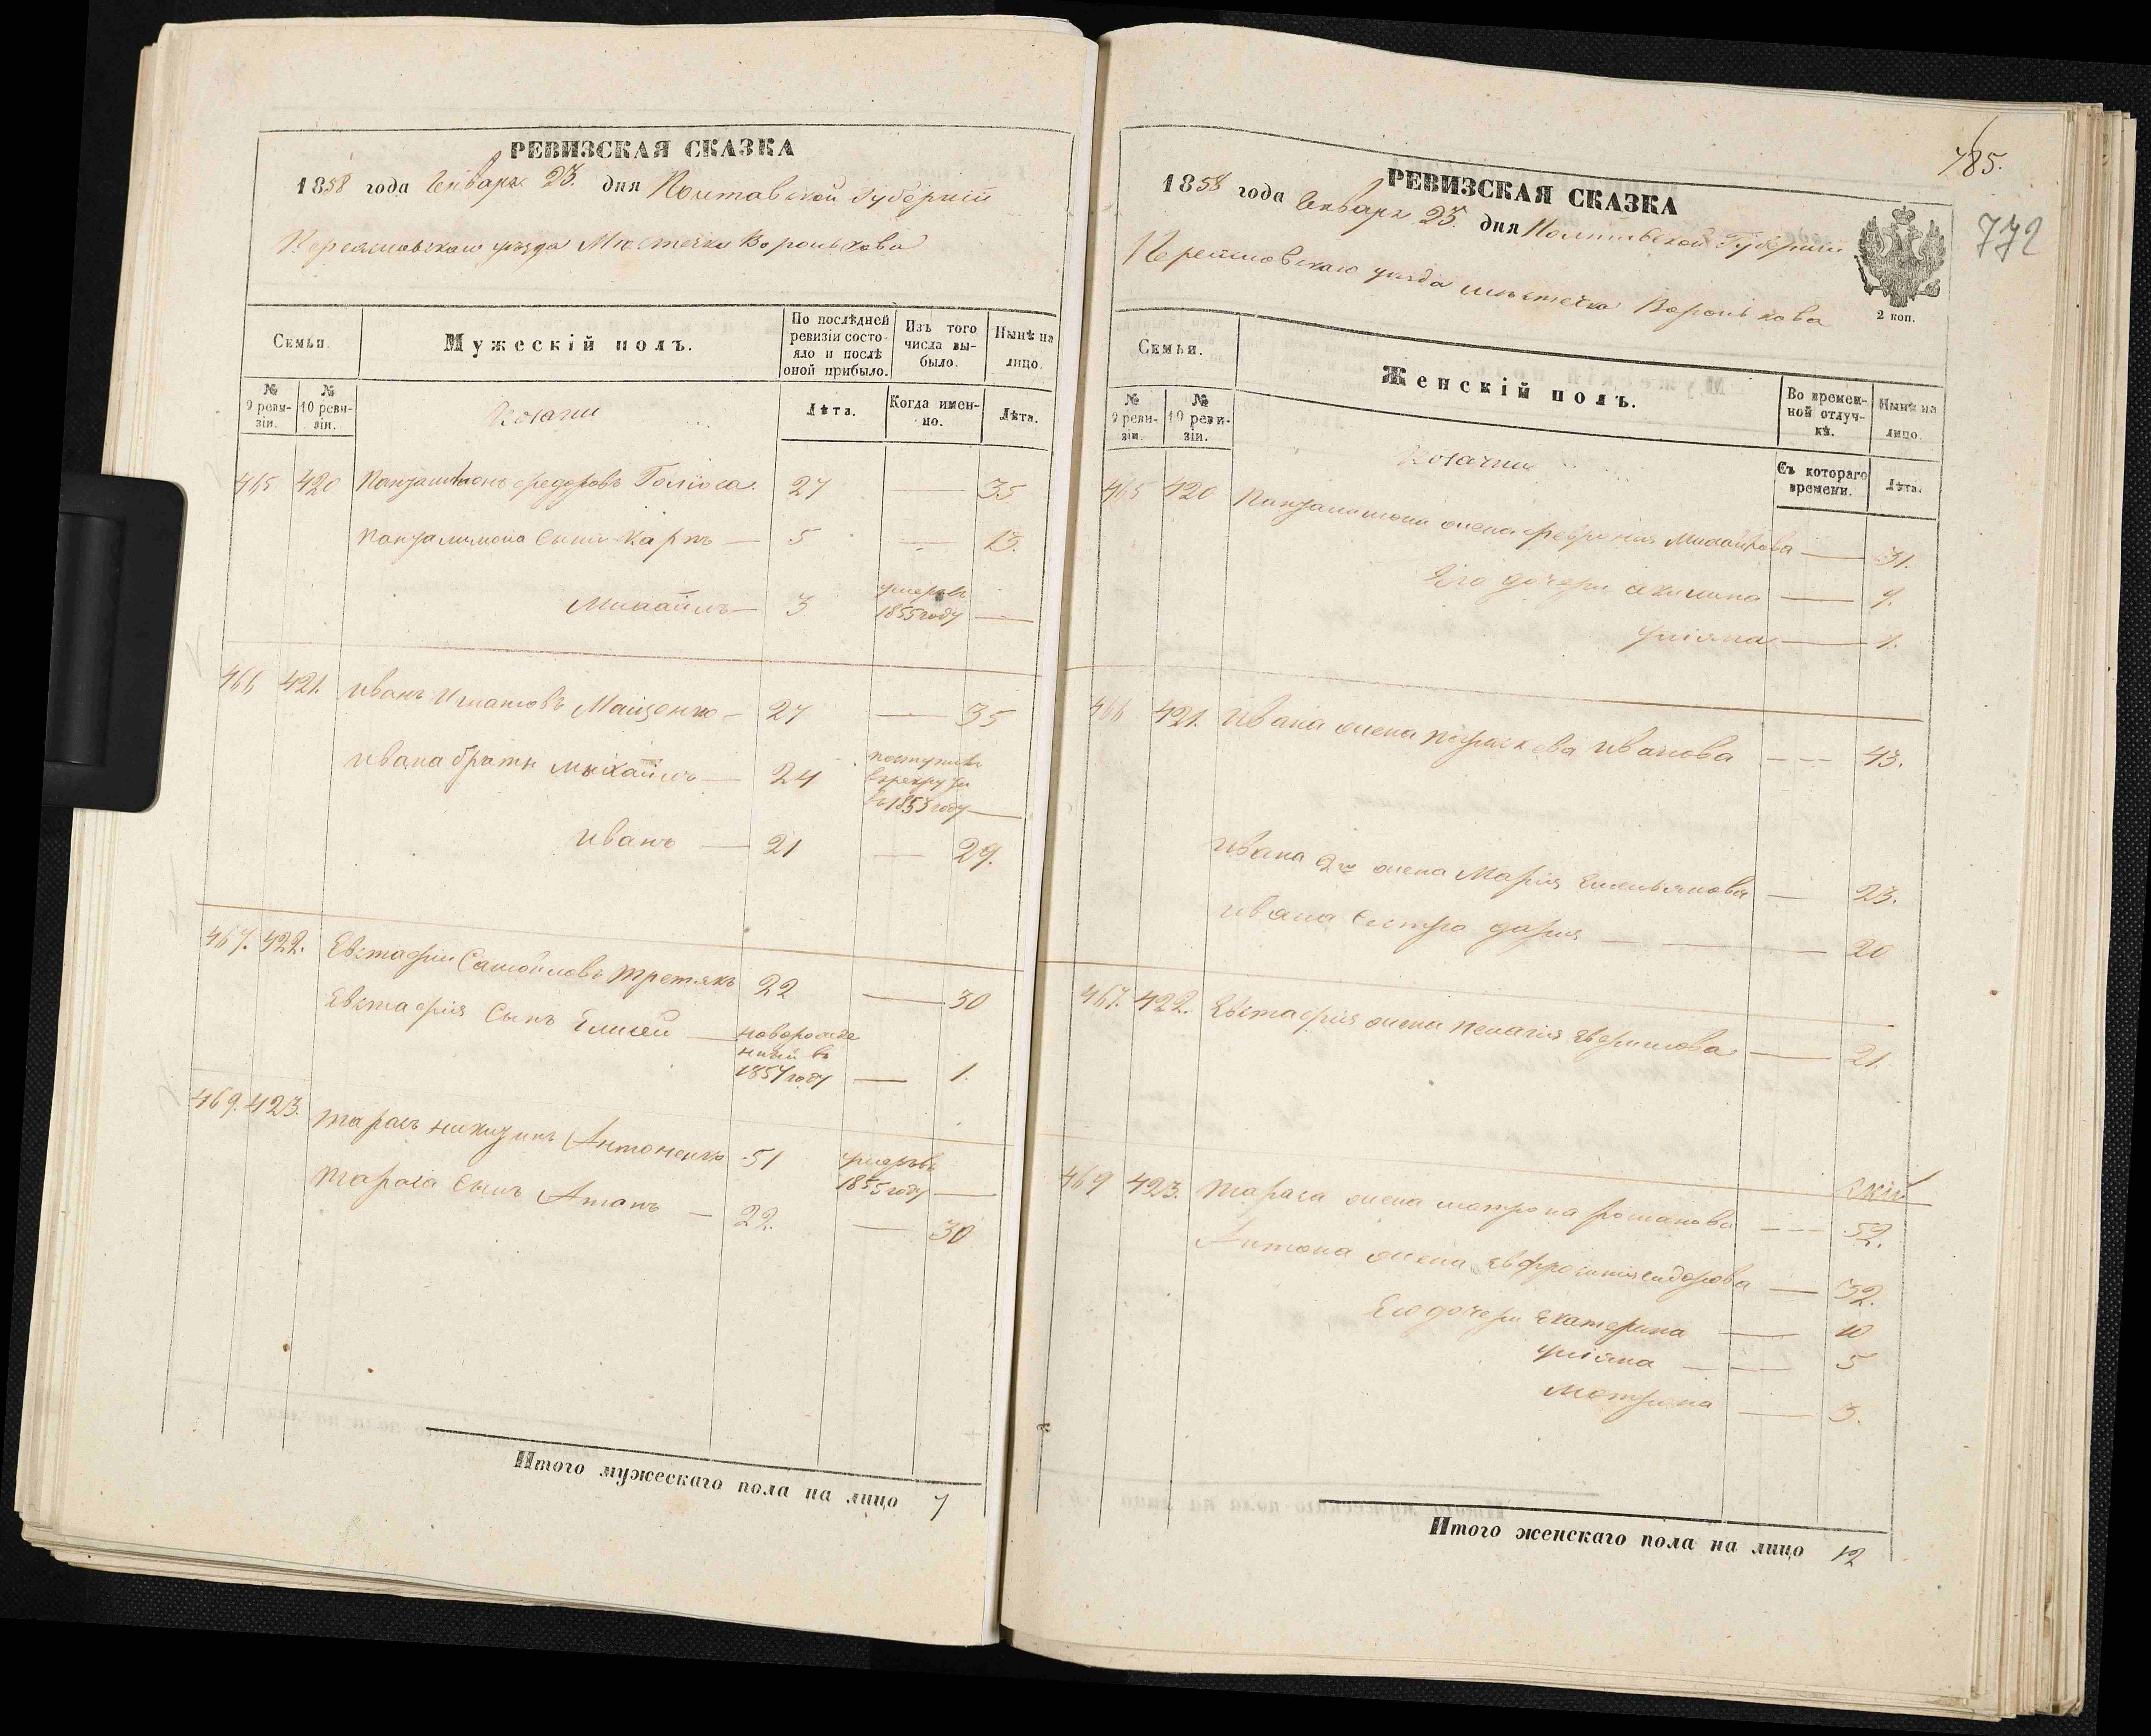 РЕВИЗСКАЯ СКАЗКА
1858 года Генваря 23. дня Полтавской Губерніи
Переяславскаго уѣзда Мѣстечка Воронькова
Семьи.
Мужескій полъ.
По послѣдней ревизіи состояло и послѣ оной прибыло.
Изъ того числа выбыло.
Нынѣ на лицо.
№ 9 ревизіи.
№ 10 ревизіи.
Козаки
Лѣта.
Когда именно.
Лѣта.
465 420 Пантелимонъ Федоровъ 27 — 35
Пантелимона сыны Карпъ — 5 — 13.
Михаилъ — 3 умеръ въ 1855 году —
466 421. Иванъ Игнатовъ Мащенко — 27 — 35
Ивана братья Михаилъ — 24 поступилъ в рекруты въ 1853 году —
Иванъ — 21 — 29.
467. 422. Евстафій Самойловъ Третякъ 22 — 30
Евстафія сынъ Елисей — новорожденный въ 1857 году — 1.
469. 423. Тарасъ Никитинъ Антоненко 51 умеръ въ 1855 году —
Тараса сынъ — 22. — 30
Итого мужескаго пола на лицо 7
785.
772
РЕВИЗСКАЯ СКАЗКА
1858 года Генваря 23. дня Полтавской Губерніи
Переяславскаго уѣзда мѣстечка Воронькова
2 коп.
Семьи.
Женскій полъ.
Во временной отлучкѣ.
Нынѣ на лицо.
№ 9 ревизіи.
№ 10 ревизіи.
Козачки
Съ котораго времени.
Лѣта.
465 420 Пантелимона жена Феврониа Михайлова — 31.
Его дочери Акилина — 9.
Уліяна — 1.
466 421. Ивана жена Параскева Иванова — — 43.
Ивана 2го жена Марія Емельянова — 23.
Ивана сестра Дарія — — 20
467. 422. Евстафія жена Пелагія — 21.
469 423. Тараса жена Матрона Романова — — 52.
Антона жена Евфросинія — 32.
Его дочери Екатерина — 10
Уліяна — — 5
Матрона — 3.
Итого женскаго пола на лицо 12